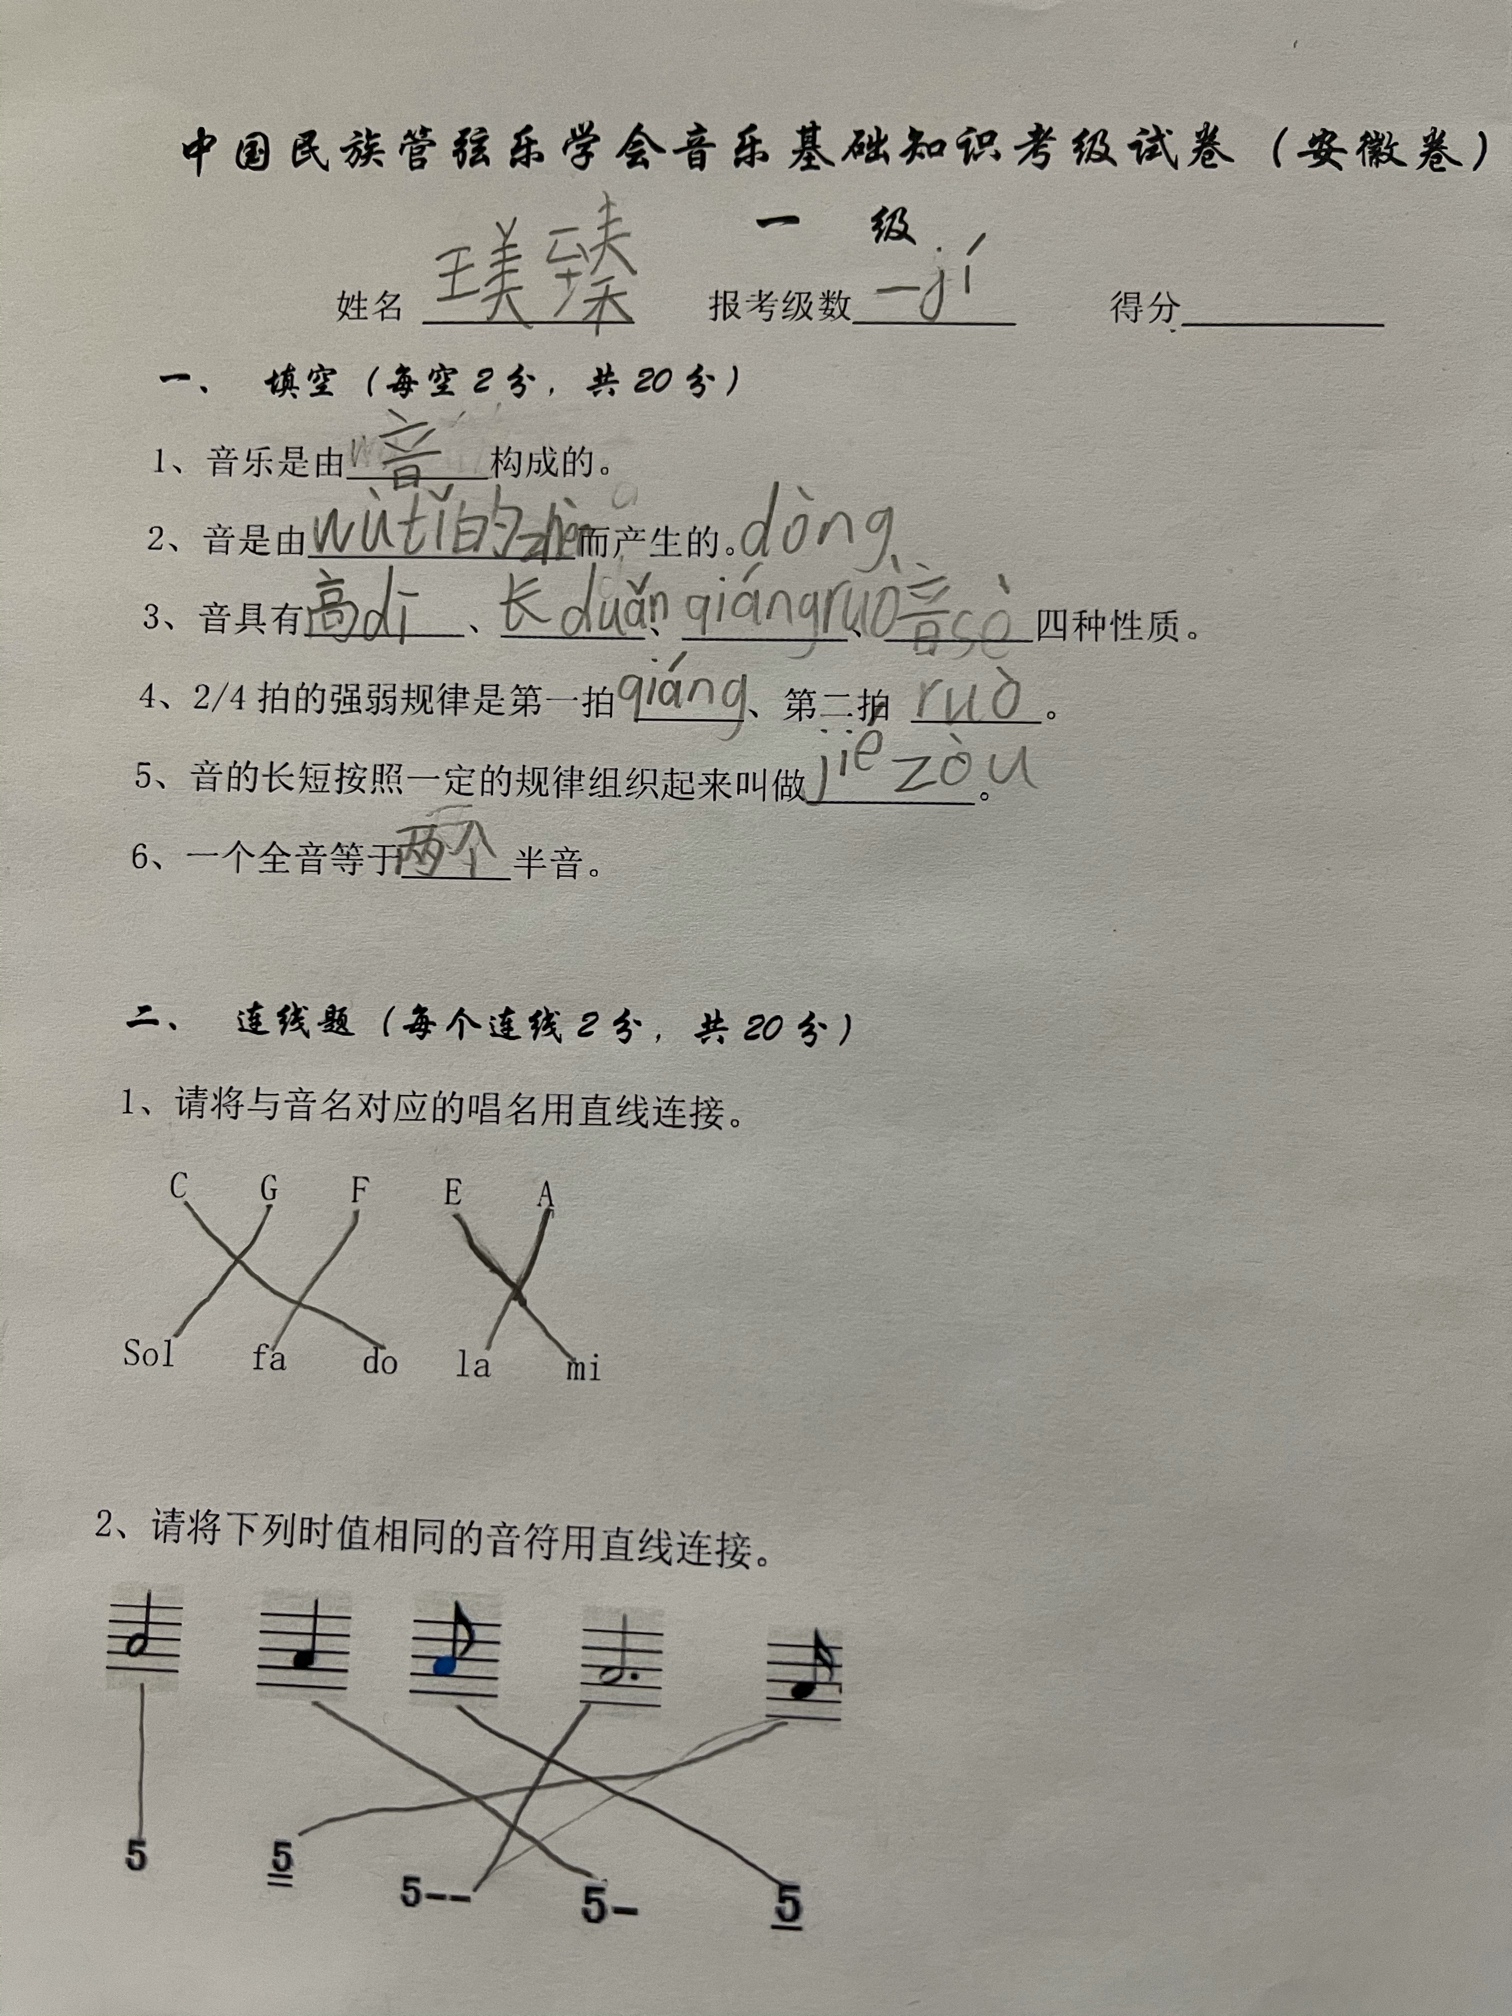 中国民族管弦乐学会音乐基础知识考级试卷（安徽卷）
一 级
姓名 王美臻 报考级数 一jí 得分
一、 填空（每空2分，共20分）
1、音乐是由 音 构成的。
2、音是由 wùtǐ的zhèn 而产生的。dòng
3、音具有 高dī 、长duǎn 、qiángruò 、音sè 四种性质。
4、2/4拍的强弱规律是第一拍 qiáng 、第二拍 ruò 。
5、音的长短按照一定的规律组织起来叫做 jiézòu 。
6、一个全音等于 两个 半音。
二、 连线题（每个连线2分，共20分）
1、请将与音名对应的唱名用直线连接。
C G F E A
Sol fa do la mi
2、请将下列时值相同的音符用直线连接。
5 5 5-- 5- 5